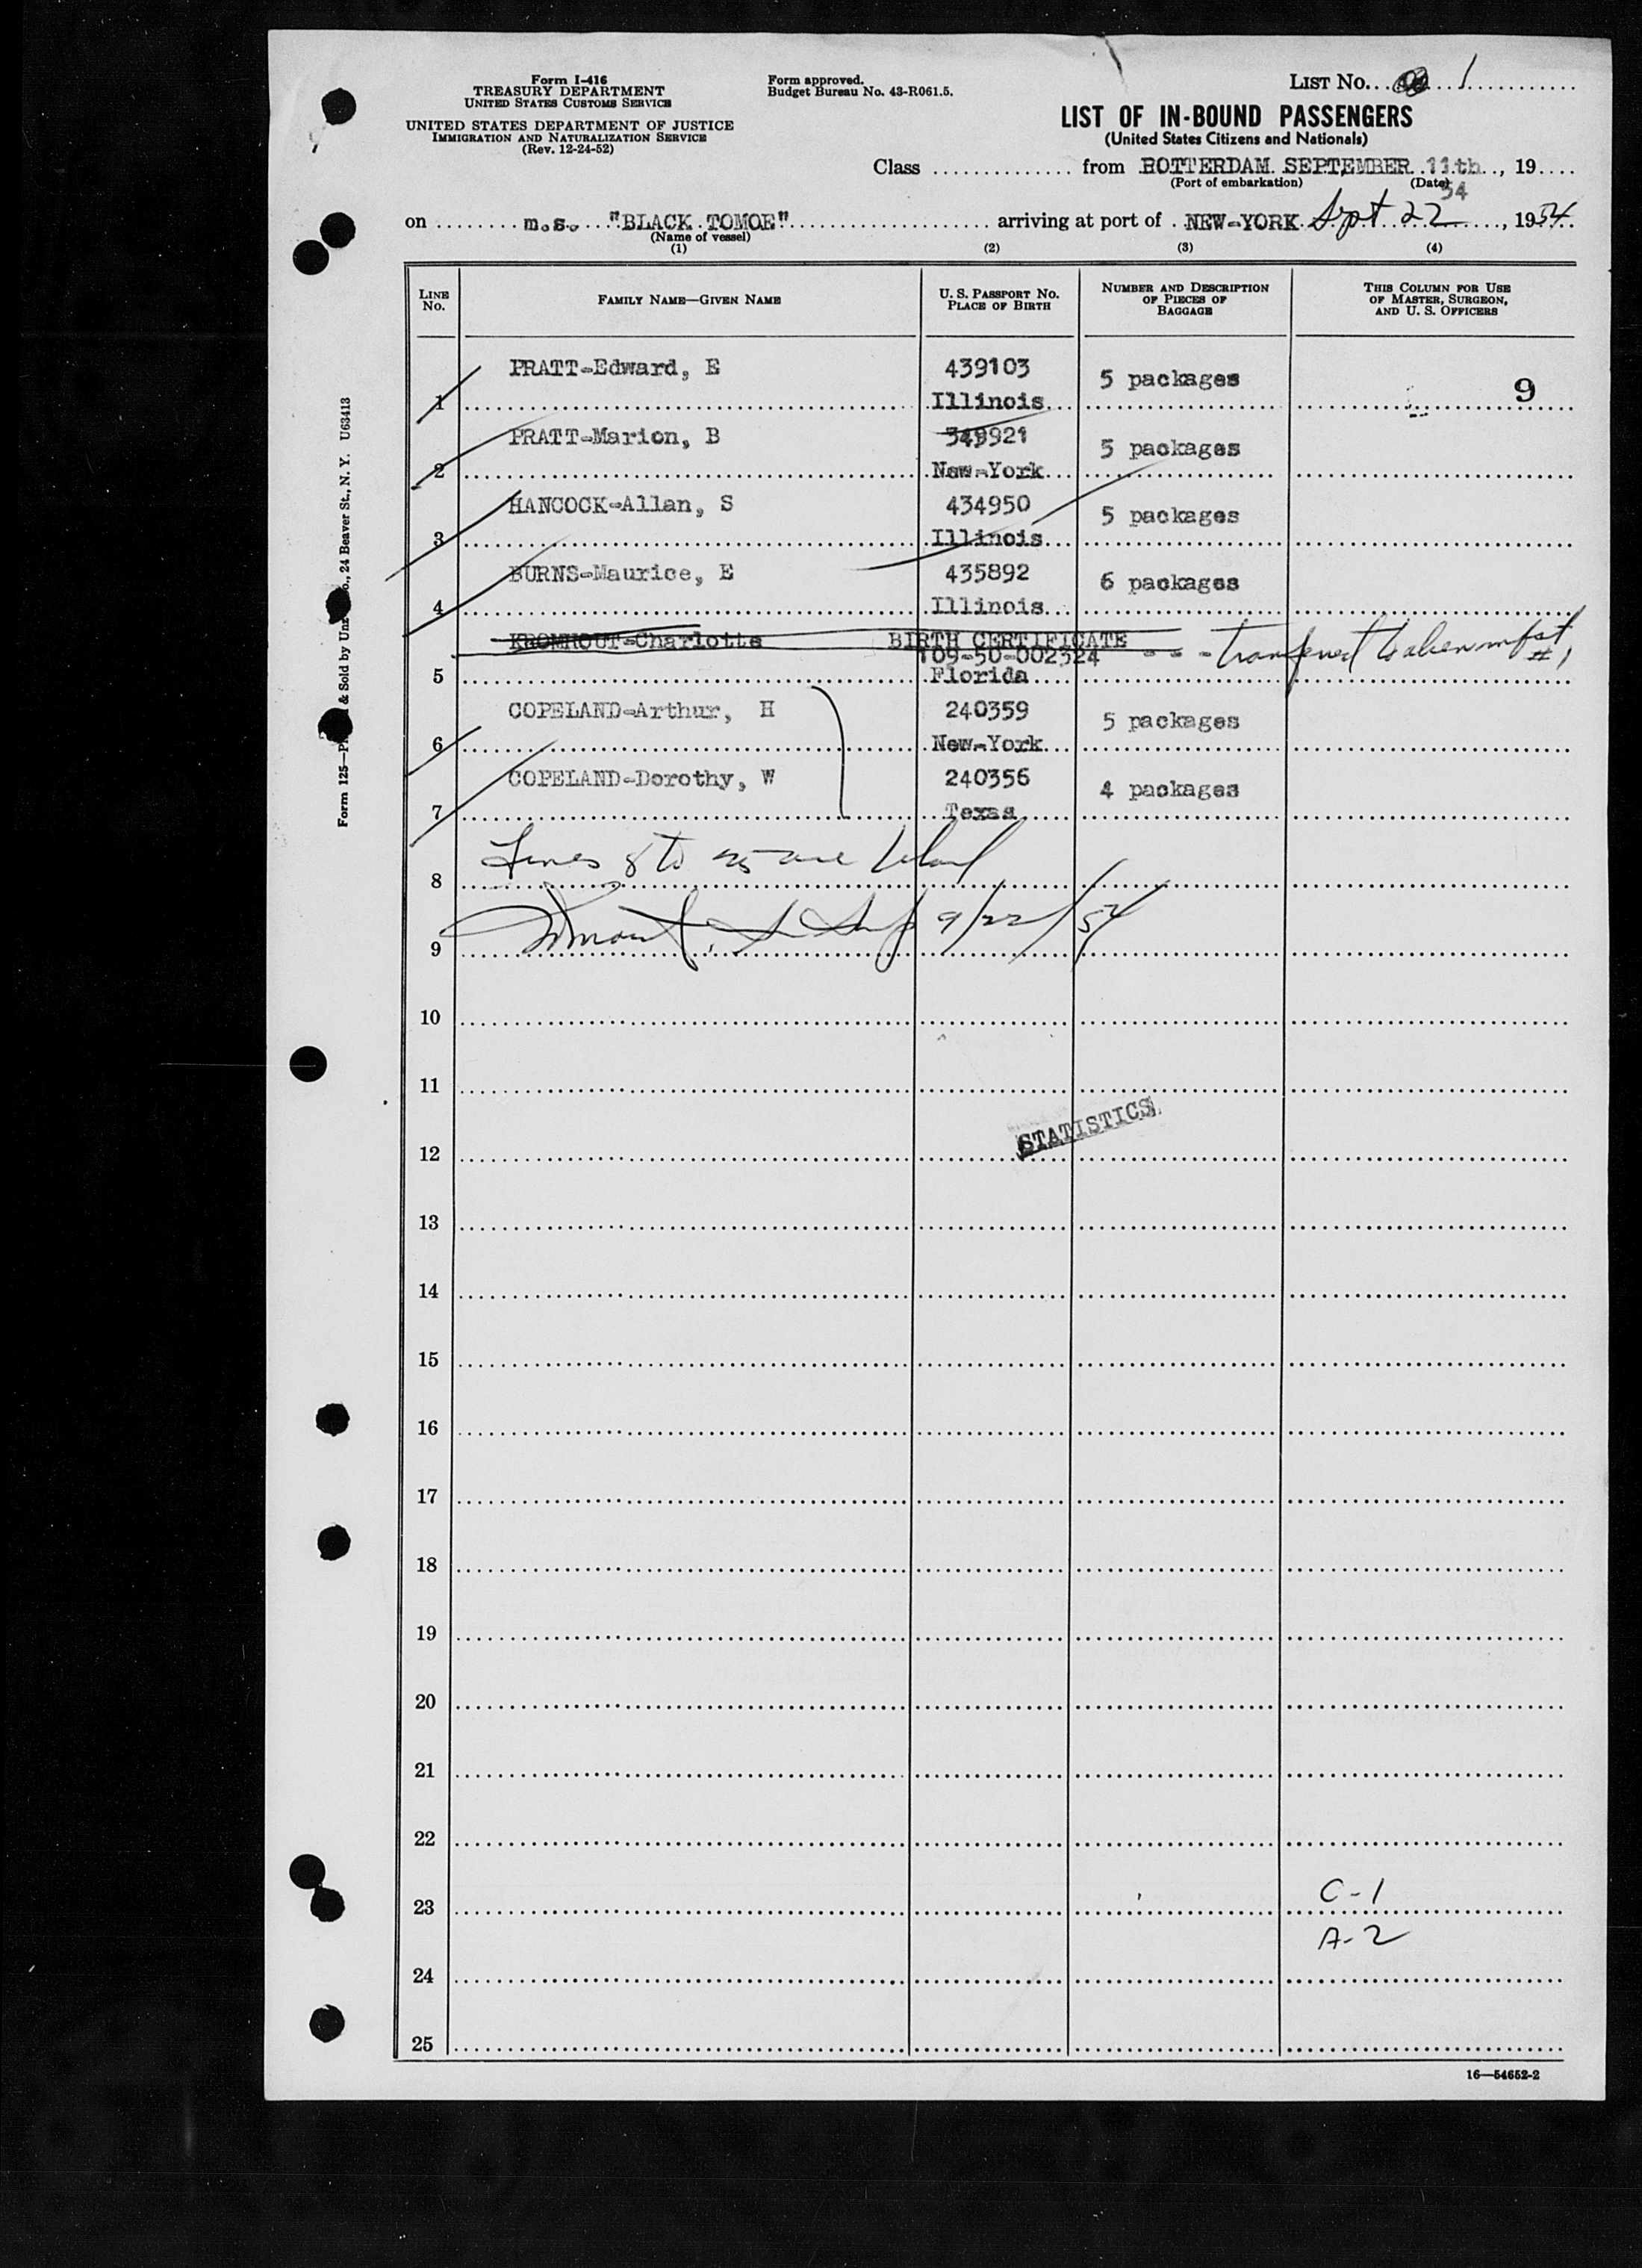 Form I-416
TREASURY DEPARTMENT
UNITED STATES CUSTOMS SERVICE
UNITED STATES DEPARTMENT OF JUSTICE
IMMIGRATION AND NATURALIZATION SERVICE
(Rev. 12-24-52)
Form approved.
Budget Bureau No. 43-R061.5.
LIST No. 1
LIST OF IN-BOUND PASSENGERS
(United States Citizens and Nationals)
Class from ROTTERDAM SEPTEMBER 11th, 19
(Port of embarkation) (Date)
54
on m.s. "BLACK TOMOE" arriving at port of NEW-YORK Sept 22, 1954
(Name of vessel)
(1) (2) (3) (4)
LINE No. FAMILY NAME—GIVEN NAME U. S. PASSPORT No. PLACE OF BIRTH NUMBER AND DESCRIPTION OF PIECES OF BAGGAGE THIS COLUMN FOR USE OF MASTER, SURGEON, AND U. S. OFFICERS
PRATT-Edward, E 439103 5 packages 9
1 Illinois
PRATT-Marion, B 349921 5 packages
2 New-York
HANCOCK-Allan, S 434950 5 packages
3 Illinois
BURNS-Maurice, E 435892 6 packages
4 Illinois
KROMHOUT-Charlotte BIRTH CERTIFICATE
109-50-002324 - - - transferred to alien mfst #1
5 Florida
COPELAND-Arthur, H 240359 5 packages
6 New-York
COPELAND-Dorothy, W 240356 4 packages
7 Texas
Lines 8 to 25 are blank
8
9/22/54
9
10
11
STATISTICS
12
13
14
15
16
17
18
19
20
21
22
C-1
23
A-2
24
25
16—54652-2
Form 125— & Sold by Unz o., 24 Beaver St., N. Y. U63413